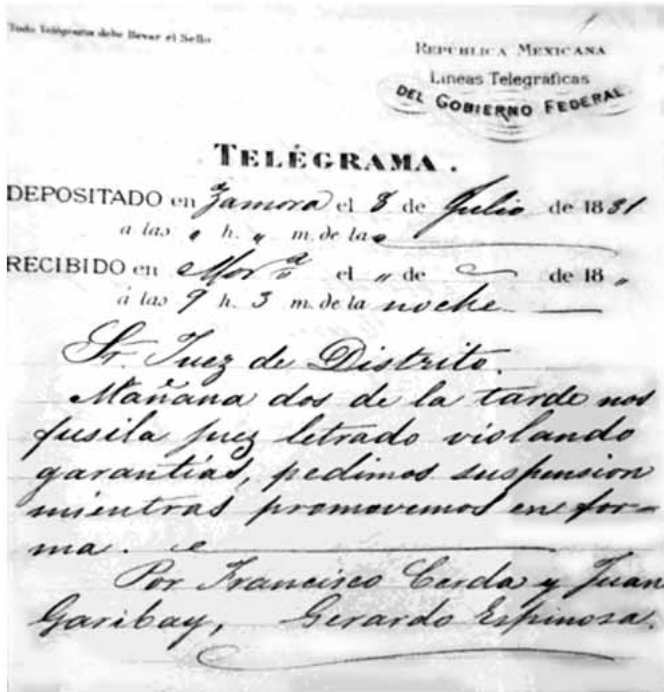 Todo Telégrama debe llevar el Sello
REPÚBLICA MEXICANA
Líneas Telegráficas
DEL GOBIERNO FEDERAL
TELÉGRAMA.
DEPOSITADO en Zamora el 8 de Julio de 1881
a las " h. " m. de la
RECIBIDO en Mora el " de de 18 "
á las 9 h. 3 m. de la noche
Sr. Juez de Distrito.
Mañana dos de la tarde nos
fusila juez letrado violando
garantías, pedimos suspension
mientras promovemos en for-
ma.
Por Francisco Cerda y Juan
Garibay, Gerardo Espinosa.